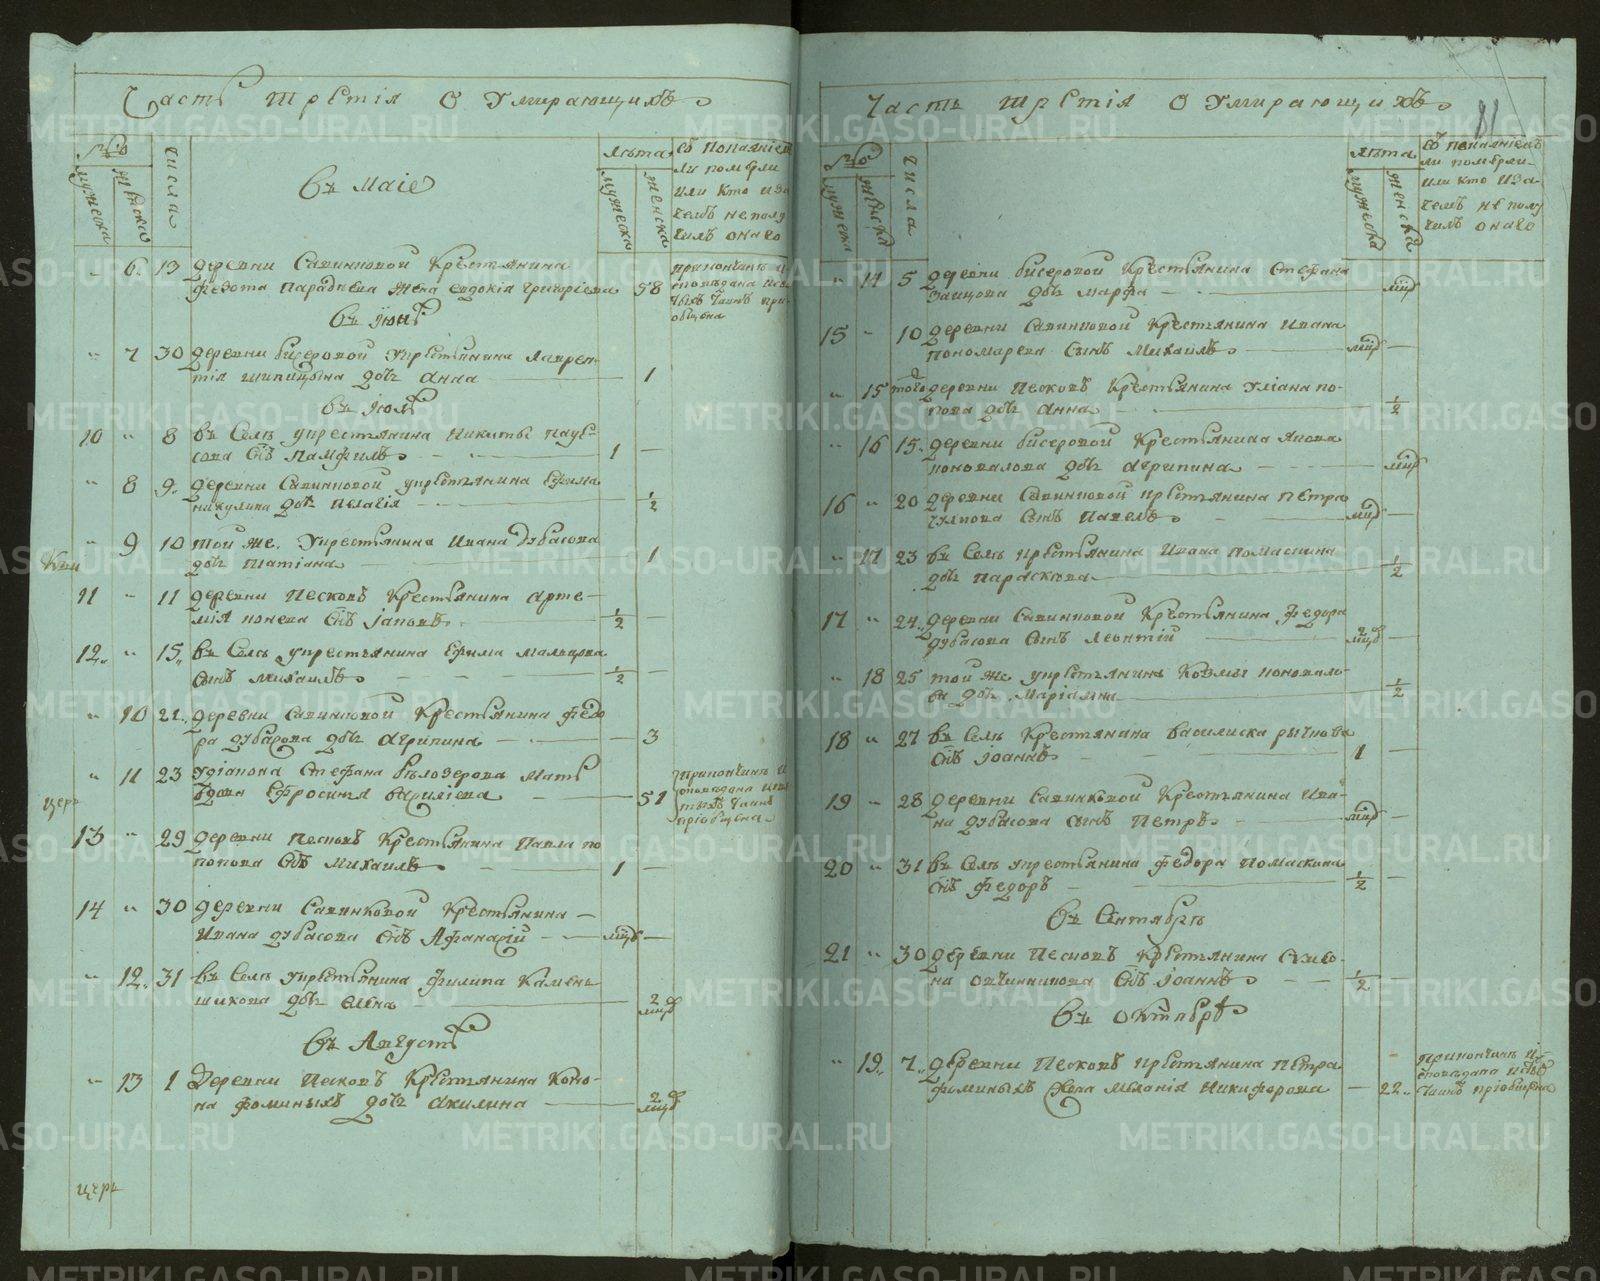 Часть третія О Умирающихъ
числа
Въ Маіе
лѣта
мужеска
женска
съ покаяніемъ
ли померли
или кто иза
чемъ не полу
чилъ онаго
6 13 деревни Савинковой Крестьянина
жена евдокія григоріева 58
при кончинѣ и
Въ Іюнѣ
7 30 деревни бисеровой укрестьянина лаврен-
тія шипицына дочь Анна 1
Въ Іюлѣ
10 8 въ Селѣ укрестьянина Никиты
сынъ Памфилъ 1
8 9 деревни Савинковой укрестьянина Ефима
никулина дочь Пелагія 1/2
9 10 той же укрестьянина Ивана дубасова
дочь Татіана 1
11 11 деревни Песковъ Крестьянина арте-
мія сынъ іаковъ 1/2
12 15 въ Селѣ укрестьянина Ефима мальцова
сынъ михаилъ 1/2
10 22 деревни Савинковой Крестьянина федо
ра дубасова дочь Агрипина 3
11 23 удіакона Стефана бѣлозерова мать
вдова Ефросинія 51
при кончинѣ и
13 29 деревни Песковъ Крестьянина Павла по
попова сынъ Михаилъ 1
14 30 деревни Савинковой Крестьянина
Ивана дубасова сынъ Афанасій
12 31 въ Селѣ укрестьянина филипа Камен-
шикова дочь елена 2
Въ Августѣ
13 1 Деревни Песковъ Крестьянина Коно-
на фоминыхъ дочь акилина 2
церк
Часть третія О Умирающихъ
81
числа
лѣта
мужеска
женска
съ покаяніемъ
ли померли
или кто иза
чемъ не полу
чилъ онаго
14 5 деревни бисеровой Крестьянина Стефана
Заицова дочь марфа
15 10 деревни Савинковой Крестьянина Ивана
пономарева сынъ Михаилъ
15 того деревни Песковъ Крестьянина Уліана по-
пова дочь Анна 1/2
16 15 деревни бисеровой Крестьянина Якова
коновалова дочь агрипина
16 20 деревни Савинковой крестьянина петра
сынъ Павелъ
17 23 въ Селѣ крестьянина Ивана помаскина
дочь параскева 1/2
17 24 деревни Савинковой Крестьянина Федора
дубасова сынъ Леонтій 2
18 25 той же укрестьянина Козмы коновало-
ва дочь маріамна 1/2
18 27 въ Селѣ Крестьянина василиска рычкова
сынъ іоаннъ 1
19 28 деревни Савинковой Крестьянина Ива-
на дубасова сынъ Петръ
20 31 въ Селѣ укрестьянина федора помаскина
сынъ Федоръ 1/2
Въ Сентябрѣ
21 30 деревни Песковъ крестьянина Симео-
на овчинникова сынъ іоаннъ 1/2
Въ Октябрѣ
19 7 деревни Песковъ крестьянина петра
фоминыхъ жена меланія Никифорова 22
при кончинѣ
METRIKI.GASO-URAL.RU